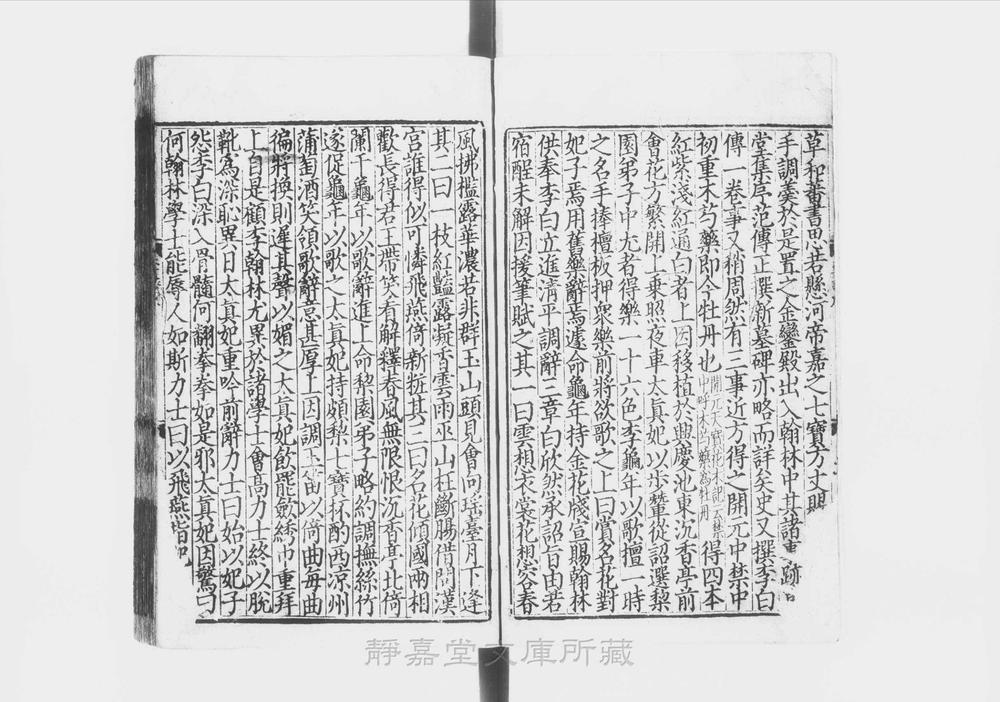 草和蕃書思若懸河帝嘉之七寶方丈賜
手調羹於是置之金鑾殿出入翰林中其諸事跡
堂集序范傳正撰新墓碑亦略而詳矣史又撰李白
傳一卷事又稍周然有三事近方得之開元中禁中
初重木芍藥即今牡丹也 開元天寶花木記云禁中呼木芍藥為牡丹 得四本
紅紫淺紅通白者上因移植於興慶池東沉香亭前
會花方繁開上乗照夜車太真妃以步輦從詔選梨
園弟子中尤者得樂一十六色李龜年以歌擅一時
之名手捧檀板押衆樂前將欲歌之上曰賞名花對
妃子焉用舊樂辭焉遽命龜年持金花牋宣賜翰林
供奉李白立進清平調辭三章白欣然承詔旨由若
宿酲未解因援筆賦之其一曰雲想衣裳花想容春
風拂檻露華濃若非群玉山頭見會向瑶臺月下逢
其二曰一枝紅豔露凝香雲雨巫山枉斷腸借問漢
宮誰得似可憐飛燕倚新粧其三曰名花傾國兩相
歡長得君王帶笑看解釋春風無限恨沉香亭北倚
闌干龜年以歌辭進上命梨園弟子略約調撫絲竹
遂促龜年以歌之太真妃持頗梨七寶杯酌西凉州
蒲萄酒笑領歌辭意甚厚上因調玉笛以倚曲每曲
徧將換則遲其聲以媚之太真妃飲罷斂綉巾重拜
上自是顧李翰林尤異於諸學士會高力士終以脫
靴為深恥異日太真妃重吟前辭力士曰始以妃子
怨李白深入骨髓何翻拳拳如是邪太真妃因驚曰
何翰林學士能辱人如斯力士曰以飛燕指妃
靜嘉堂文庫所藏